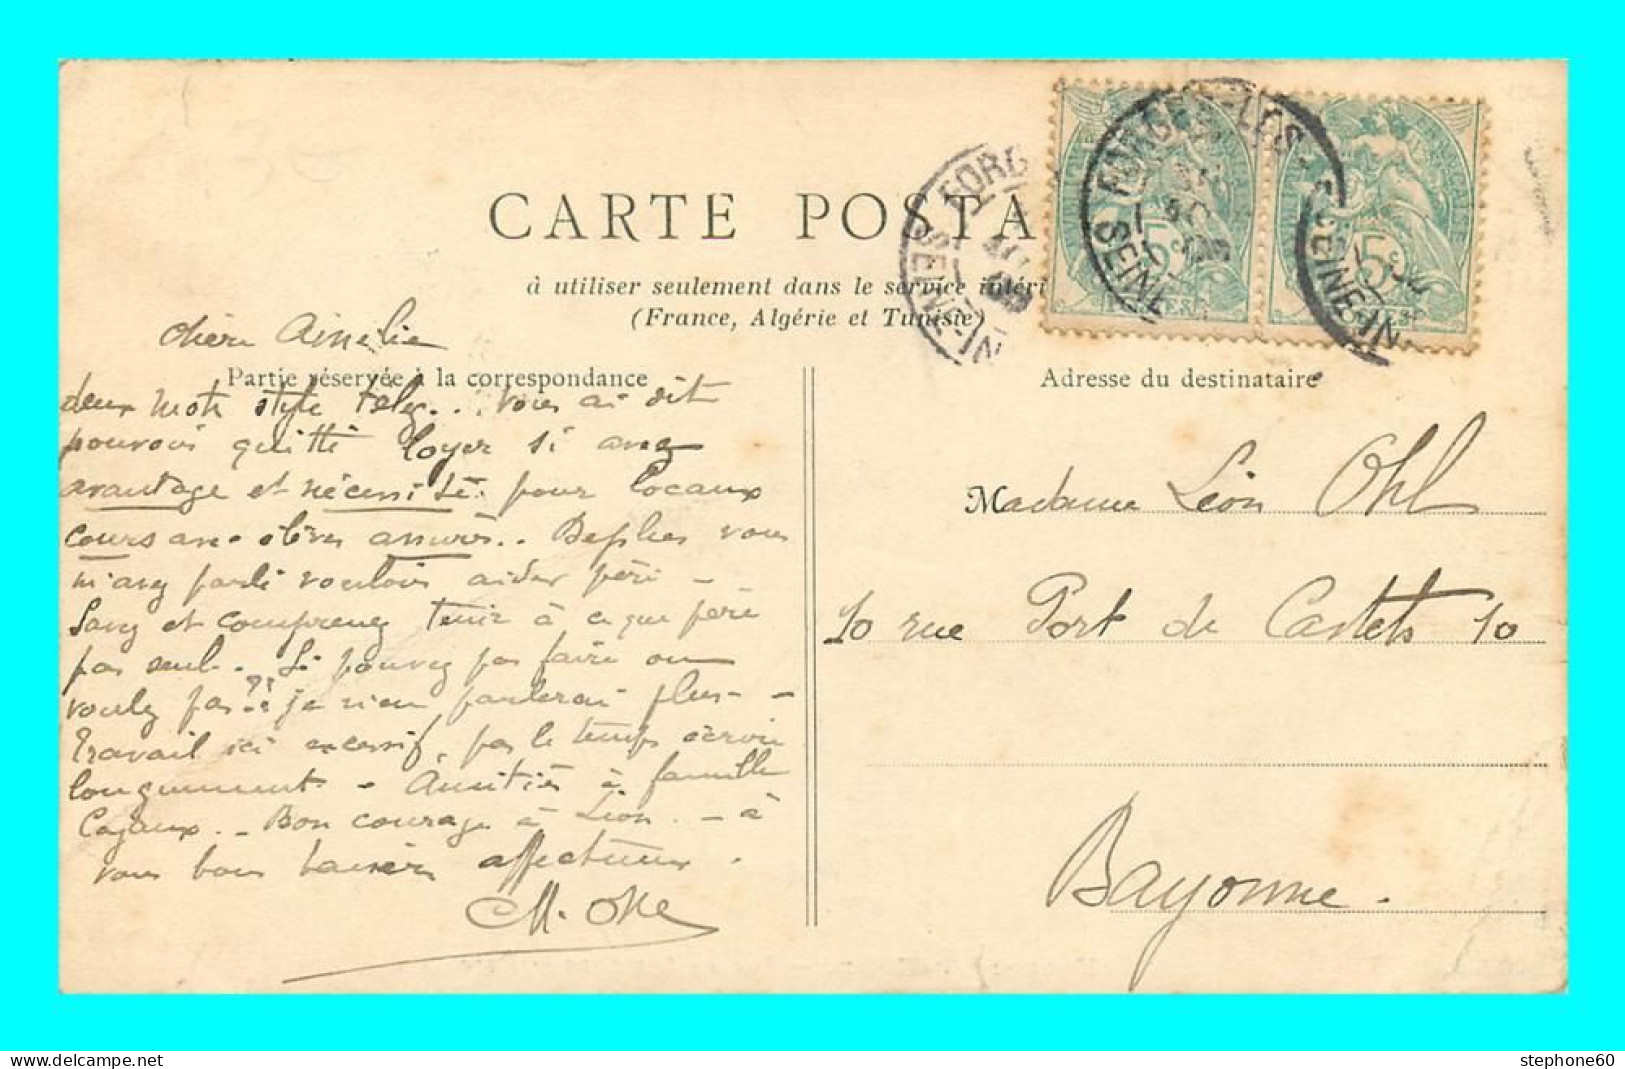 CARTE POSTA
à utiliser seulement dans le service intéri
(France, Algérie et Tunisie)
Partie réservée à la correspondance
Adresse du destinataire
FORGES-LES-
SEINE-IN
FORG
SEINE-IN
SEINE-IN
5c
5c
chère Amélie
deux mots style télég... vous ai dit
pouvoir quitter loyer si avez
avantage et nécessité pour locaux
cours avec élèves assurés.. vous
m'avez parlé vouloir aider père -
Savez et comprenez tenir à ce que père
pas seul. Si pouvez pas faire ou
voulez pas?? je n'en parlerai plus - -
Travail ici excessif, pas le temps écrire
longuement - Amitiés à famille
Cazaux. - Bon courage à Léon. - à
vous bons baisers affectueux.
M. Ohl
Madame Léon Ohl
10 rue Port de Castets 10
Bayonne.
stephone60